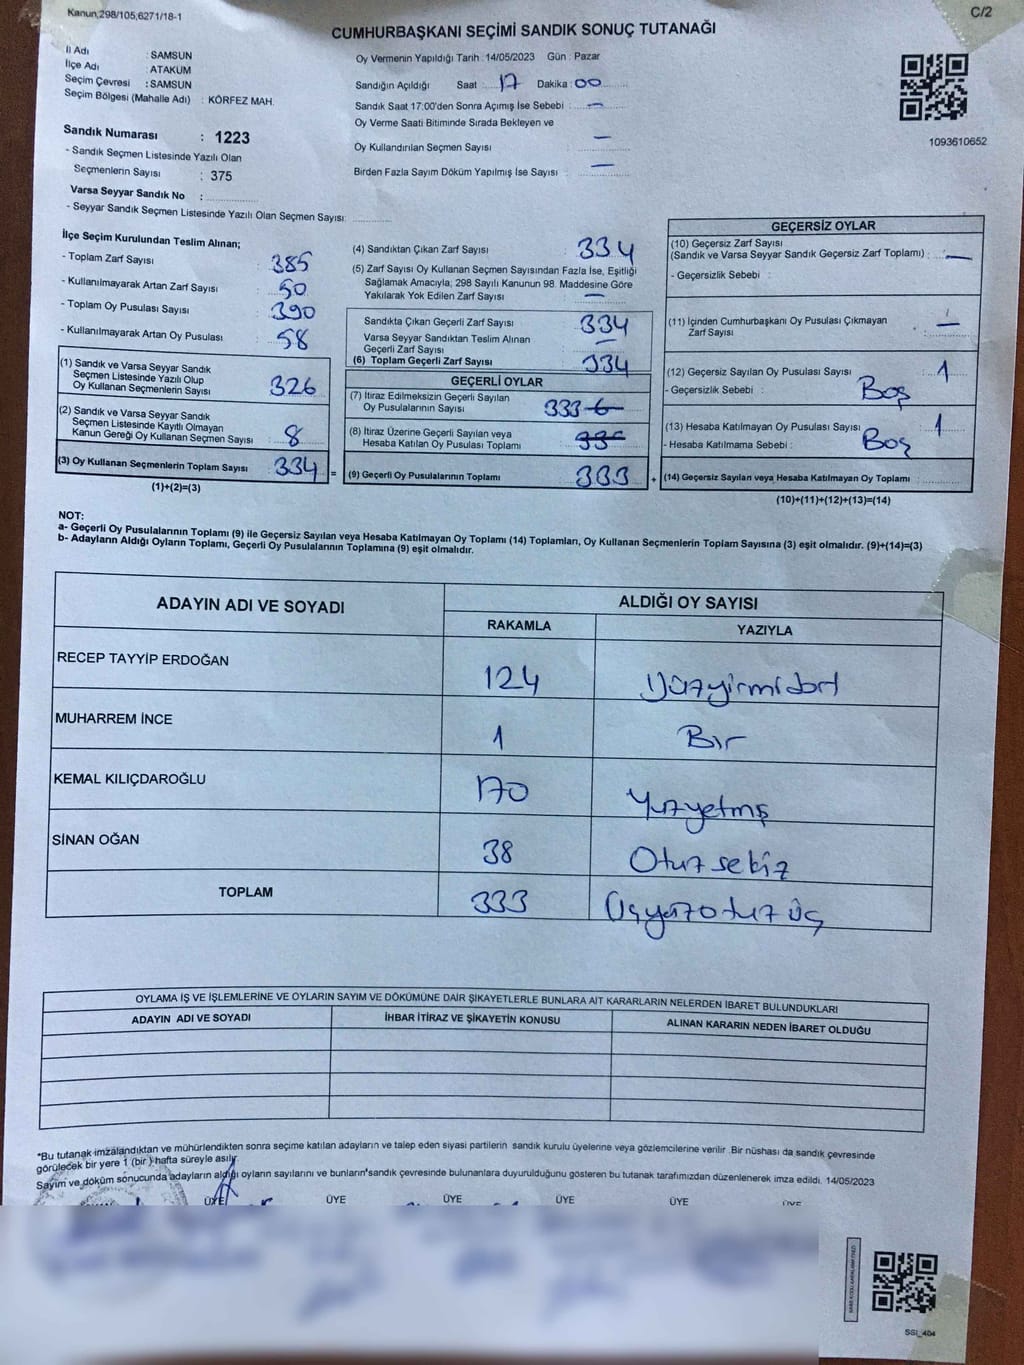 Kanun,298/105,6271/18-1
C/2
CUMHURBAŞKANI SEÇİMİ SANDIK SONUÇ TUTANAĞI
İl Adı : SAMSUN
İlçe Adı : ATAKUM
Seçim Çevresi : SAMSUN
Seçim Bölgesi (Mahalle Adı) : KÖRFEZ MAH.
Sandık Numarası : 1223
- Sandık Seçmen Listesinde Yazılı Olan
Seçmenlerin Sayısı : 375
Varsa Seyyar Sandık No :
- Seyyar Sandık Seçmen Listesinde Yazılı Olan Seçmen Sayısı:
Oy Vermenin Yapıldığı Tarih :14/05/2023 Gün : Pazar
Sandığın Açıldığı Saat : 17 Dakika : 00
Sandık Saat 17:00'den Sonra Açımış İse Sebebi : —
Oy Verme Saati Bitiminde Sırada Bekleyen ve
Oy Kullandırılan Seçmen Sayısı : —
Birden Fazla Sayım Döküm Yapılmış İse Sayısı : —
1093610652
İlçe Seçim Kurulundan Teslim Alınan;
- Toplam Zarf Sayısı : 385
- Kullanılmayarak Artan Zarf Sayısı : 50
- Toplam Oy Pusulası Sayısı : 390
- Kullanılmayarak Artan Oy Pusulası : 58
(1) Sandık ve Varsa Seyyar Sandık
Seçmen Listesinde Yazılı Olup
Oy Kullanan Seçmenlerin Sayısı : 326
(2) Sandık ve Varsa Seyyar Sandık
Seçmen Listesinde Kayıtlı Olmayan
Kanun Gereği Oy Kullanan Seçmen Sayısı : 8
(3) Oy Kullanan Seçmenlerin Toplam Sayısı : 334 =
(1)+(2)=(3)
(4) Sandıktan Çıkan Zarf Sayısı : 334
(5) Zarf Sayısı Oy Kullanan Seçmen Sayısından Fazla İse, Eşitliği
Sağlamak Amacıyla, 298 Sayılı Kanunun 98. Maddesine Göre
Yakılarak Yok Edilen Zarf Sayısı : —
Sandıkta Çıkan Geçerli Zarf Sayısı : 334
Varsa Seyyar Sandıktan Teslim Alınan
Geçerli Zarf Sayısı : —
(6) Toplam Geçerli Zarf Sayısı : 334
GEÇERLİ OYLAR
(7) İtiraz Edilmeksizin Geçerli Sayılan
Oy Pusulalarının Sayısı : 333
(8) İtiraz Üzerine Geçerli Sayılan veya
Hesaba Katılan Oy Pusulası Toplamı :
(9) Geçerli Oy Pusulalarının Toplamı : 333 +
GEÇERSİZ OYLAR
(10) Geçersiz Zarf Sayısı
(Sandık ve Varsa Seyyar Sandık Geçersiz Zarf Toplamı) : —
- Geçersizlik Sebebi :
(11) İçinden Cumhurbaşkanı Oy Pusulası Çıkmayan
Zarf Sayısı : —
(12) Geçersiz Sayılan Oy Pusulası Sayısı : 1
- Geçersizlik Sebebi : Boş
(13) Hesaba Katılmayan Oy Pusulası Sayısı : 1
- Hesaba Katılmama Sebebi : Boş
(14) Geçersiz Sayılan veya Hesaba Katılmayan Oy Toplamı :
(10)+(11)+(12)+(13)=(14)
NOT:
a- Geçerli Oy Pusulalarının Toplamı (9) ile Geçersiz Sayılan veya Hesaba Katılmayan Oy Toplamı (14) Toplamları, Oy Kullanan Seçmenlerin Toplam Sayısına (3) eşit olmalıdır. (9)+(14)=(3)
b- Adayların Aldığı Oyların Toplamı, Geçerli Oy Pusulalarının Toplamına (9) eşit olmalıdır.
ADAYIN ADI VE SOYADI
ALDIĞI OY SAYISI
RAKAMLA YAZIYLA
RECEP TAYYİP ERDOĞAN 124 Yüzyirmidört
MUHARREM İNCE 1 Bir
KEMAL KILIÇDAROĞLU 170 Yuzyetmş
SİNAN OĞAN 38 Otuzsekiz
TOPLAM 333 Üçyüzotuzüç
OYLAMA İŞ VE İŞLEMLERİNE VE OYLARIN SAYIM VE DÖKÜMÜNE DAİR ŞİKAYETLERLE BUNLARA AİT KARARLARIN NELERDEN İBARET BULUNDUKLARI
ADAYIN ADI VE SOYADI İHBAR İTİRAZ VE ŞİKAYETİN KONUSU ALINAN KARARIN NEDEN İBARET OLDUĞU
*Bu tutanak imzalandıktan ve mühürlendikten sonra seçime katılan adayların ve talep eden siyasi partilerin sandık kurulu üyelerine veya gözlemcilerine verilir. Bir nüshası da sandık çevresinde
görülecek bir yere 1 (bir) hafta süreyle asılır.
Sayım ve döküm sonucunda adayların aldığı oyların sayılarını ve bunların sandık çevresinde bulunanlara duyurulduğunu gösteren bu tutanak tarafımızdan düzenlenerek imza edildi. 14/05/2023
ÜYE ÜYE ÜYE ÜYE ÜYE ÜYE
SSI_404